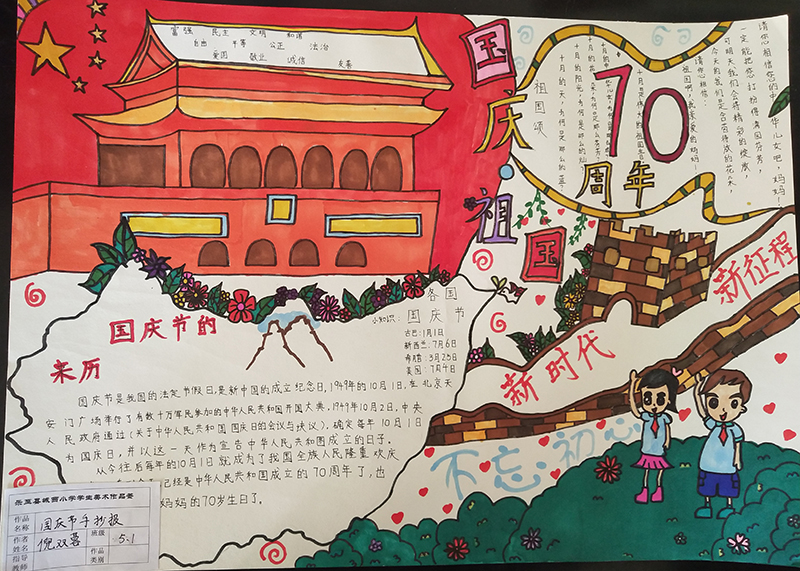 富强 民主 文明 和谐
自由 平等 公正 法治
爱国 敬业 诚信 友善
国庆·祖国
祖国颂
十月的天，为何是那么的蓝？
70
周年
请你相信您的中华儿女吧，妈妈！
一定能把您打扮得满园芬芳，
可明天我们会将精彩的绽放，
今天的我们是含苞待放的花朵，
请您相信：
新征程
新时代
不忘初心
国庆节的
来历
小知识：
各国
国庆节
古巴：1月1日
新西兰：7月6日
希腊：3月25日
美国：7月4日
国庆节是我国的法定节假日，是新中国的成立纪念日，1949年的10月1，在北京天
安门广场举行了有数十万军民参加的中华人民共和国开国大典，1949年10月2日，中央
人民政府通过《关于中华人民共和国国庆日的会议与抉议》，确定每年10月1日
为国庆日，并以这一天作为宣告中华人民共和国成立的日子。
从今往后每年的10月1日就成为了我国全族人民隆重欢庆
已经是中华人民共和国成立的70周年了，也
妈妈的70岁生日了。
乐至县城西小学学生美术作品卷
作品名称 国庆节手抄报
作者姓名 倪双蓉 班级 5.1
指导教师 作品类别